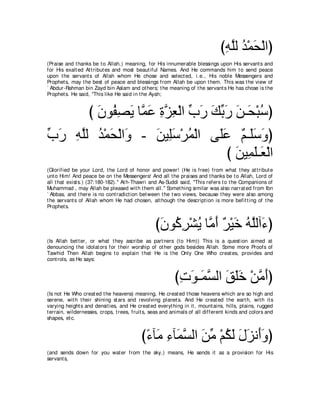 (الْحَمْدُ لِلَّهِ)
(Praise and thanks be to Allah,) meaning, for His innumerable blessings upon His servants and
for His exalted Attributes and most beautiful Names. And He commands him to send peace
upon the servants of Allah whom He chose and selected, i.e., His noble Messengers and
Prophets, may the best of peace and blessings from Allah be upon them. This was the view of
`Abdur-Rahman bin Zayd bin Aslam and others; the meaning of the servants He has chose is the
Prophets. He said, "This like He said in the Ayah;
( سُبْحَـنَ رَبِّكَ رَبِّ الْعِزَّةِ عَمَّا يَصِفُونَ
وَسَلَـمٌ عَلَى الْمُرْسَلِينَ - وَالْحَمْدُ لِلَّهِ رَبِّ
الْعَـلَمِينَ )
(Glorified be your Lord, the Lord of honor and power! (He is free) from what they attribute
unto Him! And peace be on the Messengers! And all the praises and thanks be to Allah, Lord of
all that exists.) (37:180-182)." Ath-Thawri and As-Suddi said, "This refers to the Companions of
Muhammad , may Allah be pleased with them all." Something similar was also narrated from Ibn
`Abbas, and there is no contradiction between the two views, because they were also among
the servants of Allah whom He had chosen, although the description is more befitting of the
Prophets.
(ءَآللَّهُ خَيْرٌ أَمَّا يُشْرِكُونَ)
(Is Allah better, or what they ascribe as partners (to Him)) This is a question aimed at
denouncing the idolators for their worship of other gods besides Allah. Some more Proofs of
Tawhid Then Allah begins to explain that He is the Only One Who creates, provides and
controls, as He says:
(أَمَّنْ خَلَقَ السَّمَـوَتِ)
(Is not He Who created the heavens) meaning, He created those heavens which are so high and
serene, with their shining stars and revolving planets. And He created the earth, with its
varying heights and densities, and He created everything in it, mountains, hills, plains, rugged
terrain, wildernesses, crops, trees, fruits, seas and animals of all different kinds and colors and
shapes, etc.
(وَأَنزَلَ لَكُمْ مِّنَ السَّمَآءِ مَآءً)
(and sends down for you water from the sky,) means, He sends it as a provision for His
servants,